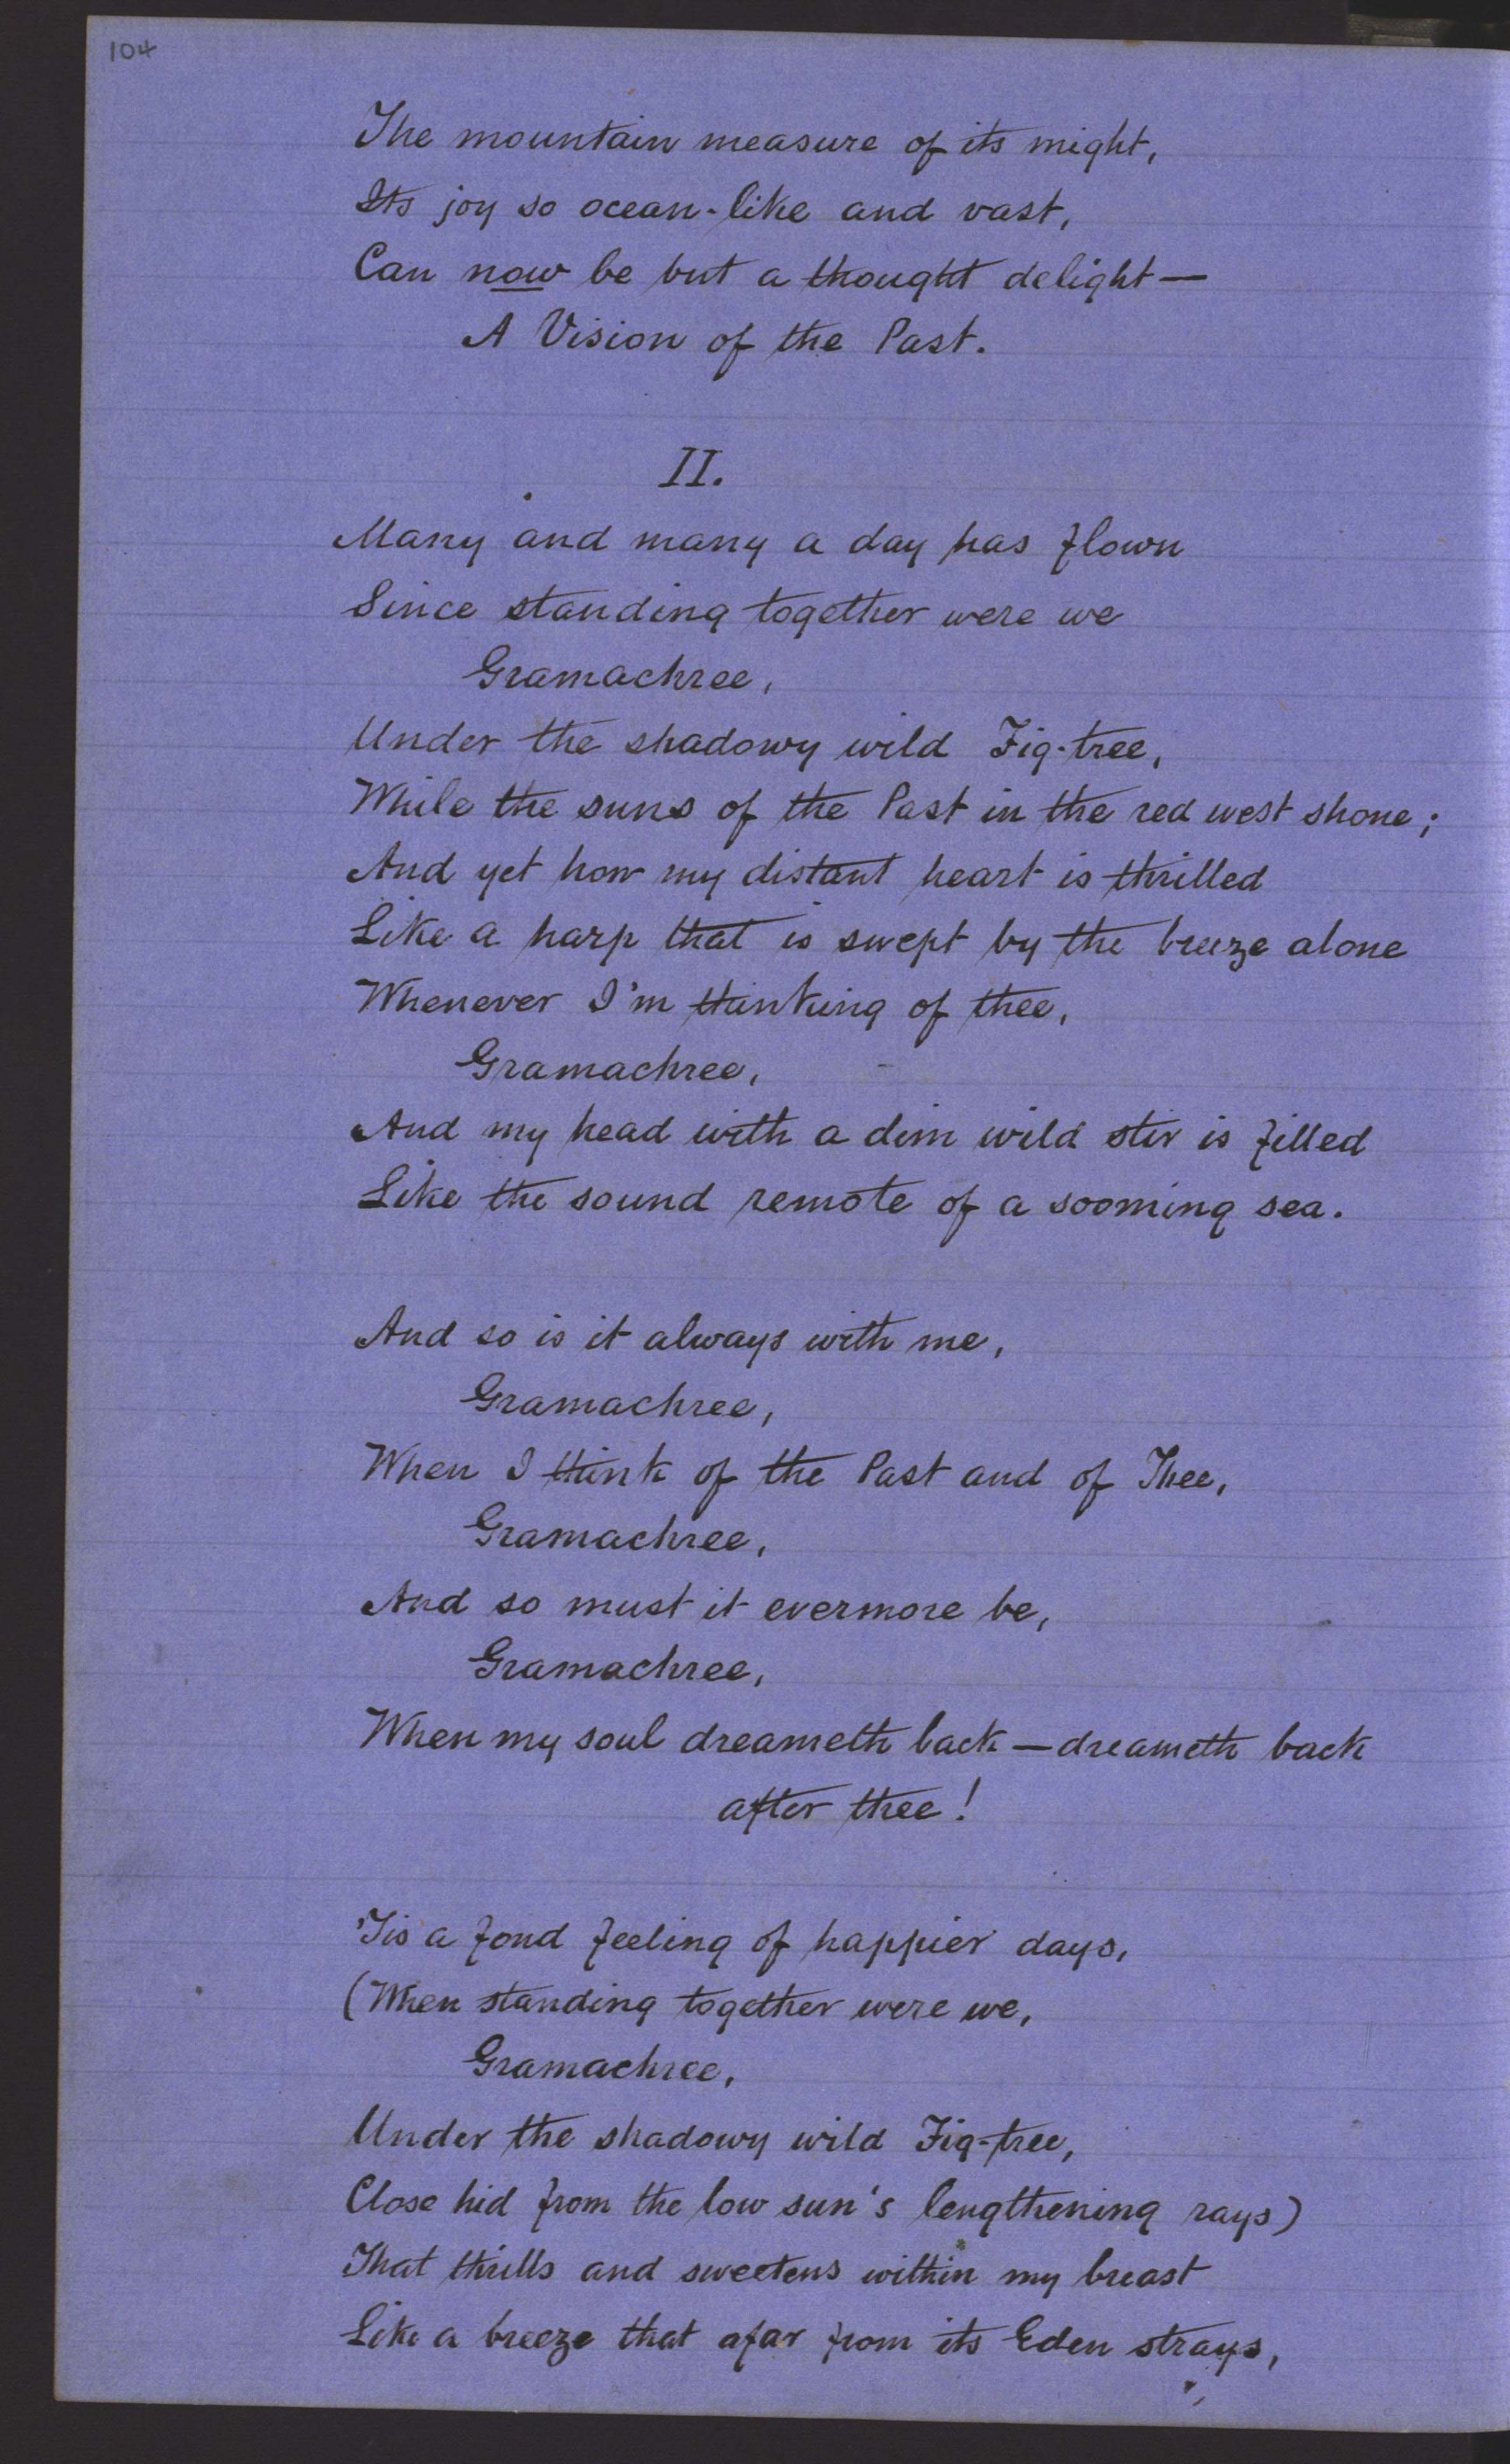 104
The mountain measure of its might,
Its joy so ocean-like and vast,
Can now be but a thought delight—
A Vision of the Past.
II.
Many and many a day has flown
Since standing together were we
Gramachree,
Under the shadowy wild Fig-tree,
While the suns of the Past in the red west shone;
And yet how my distant heart is thrilled
Like a harp that is swept by the breeze alone
Whenever I'm thinking of thee,
Gramachree,
And my head with a dim wild stir is filled
Like the sound remote of a sooming sea.
And so is it always with me,
Gramachree,
When I think of the Past and of Thee,
Gramachree,
And so must it evermore be,
Gramachree,
When my soul dreameth back—dreameth back
after thee!
'Tis a fond feeling of happier days,
(When standing together were we,
Gramachree,
Under the shadowy wild Fig-tree,
Close hid from the low sun's lengthening rays)
That thrills and sweetens within my breast
Like a breeze that afar from its Eden strays,